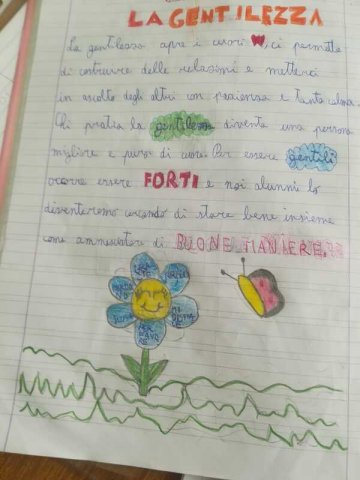 LA GENTILEZZA
La gentilezza apre i cuori, ci permette
di costruire delle relazioni e metterci
in ascolto degli altri con pazienza e tanta calma.
Chi pratica la gentilezza diventa una persona
migliore e piena di cuore. Per essere gentili
occorre essere FORTI e noi alunni lo
diventeremo cercando di stare bene insieme
come ambasciatori di BUONE MANIERE.